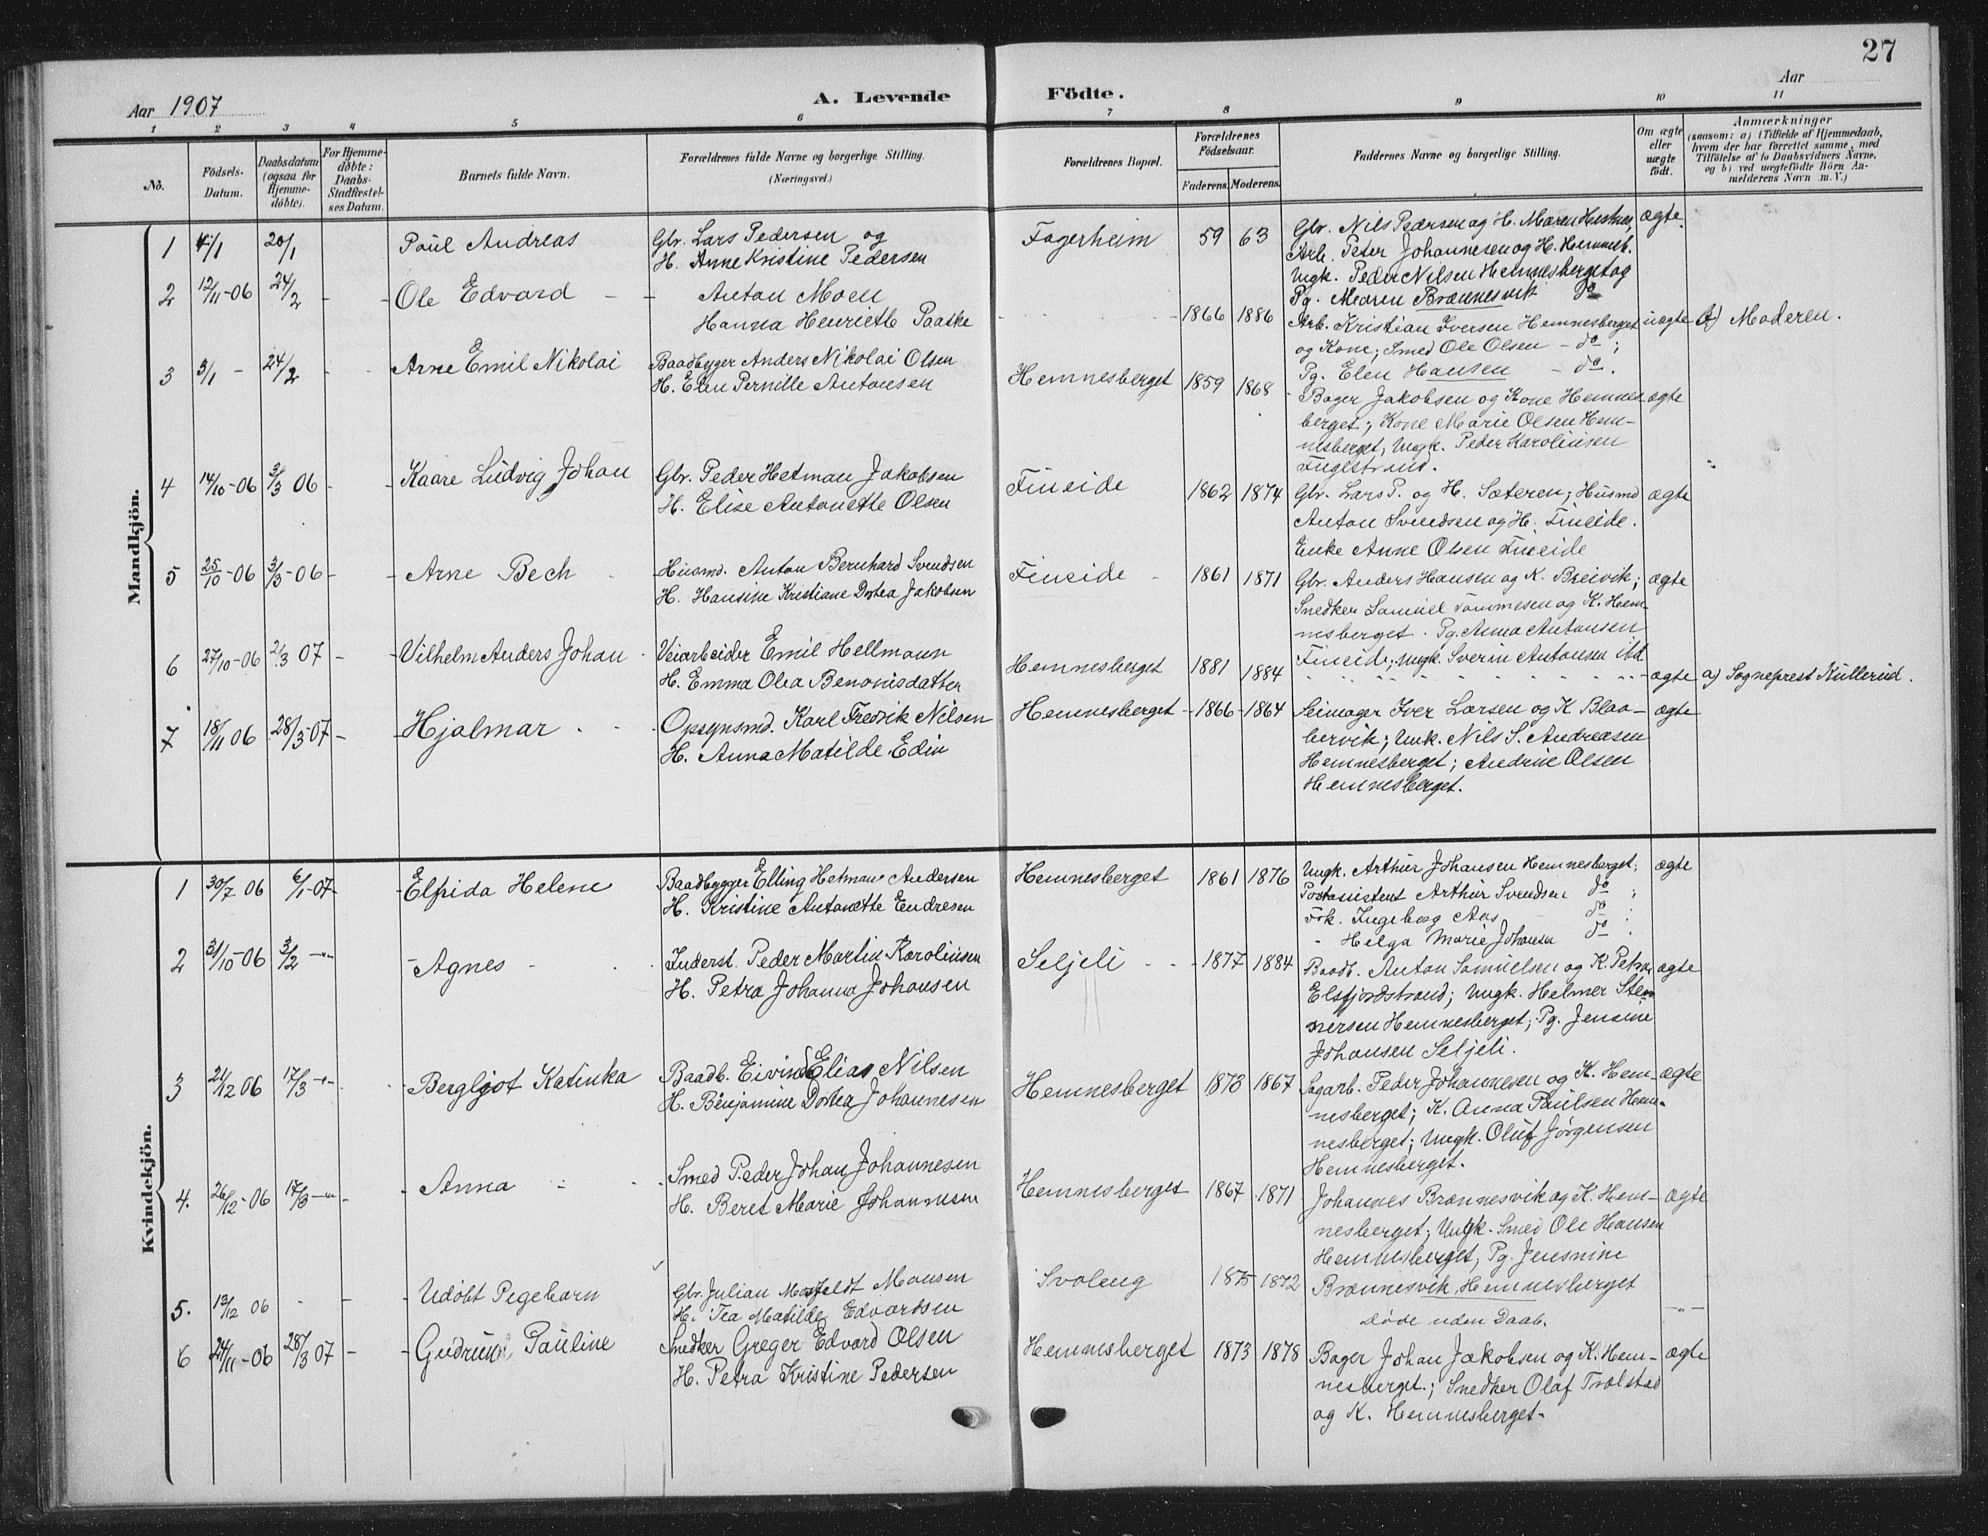 27
Aar 1907
A. Levende
Födte.
Aar
1 2 3 4 5 6 7 8 9 10 11
No.
Födsels-Datum.
Daabsdatum (ogsaa for Hjemme-döbte).
For Hjemme-döbte: Daabs-Stadfæstel-ses Datum.
Barnets fulde Navn.
Forældrenes fulde Navne og borgerlige Stilling.
(Næringsvei.)
Forældrenes Bopæl.
Forældrenes Födselsaar.
Faderens. Moderens.
Faddernes Navne og borgerlige Stilling.
Om ægte eller uægte födt.
Anmærkninger
(saasom: a) i Tilfælde af Hjemmedaab,
hvem der har forrettet samme, med
Tilföielse af to Daabsvidners Navne,
og b) ved uægtefödte Börn An-
melderens Navn m. V.)
Mandkjön.
1 4/1 20/1 Paul Andreas
Gbr. Lars Pedersen og
H. Anne Kristine Pedersen
Fagerheim 59 63
Gbr. Nils Pedersen og H. Maren Hestnes, ægte.
Arb. Peter Johannesen og H. Hemnesb.
Ungk. Peder Nilsen Hemnesberget og
Pg. Maren Brænnesvik do
2 12/11-06 24/2 - - Ole Edvard - -
Anton Moen
Hanna Henriette Paaske
1866 1886
Arb. Kristian Iversen Hemnesberget uægte b) Moderen.
og Kone; Smed Ole Olsen - do ;
Pg. Elen Hansen - do.
3 3/1 - 24/2 Arne Emil Nikolai
Baadbygger Anders Nikolai Olsen
H. Elen Pernille Antonsen
Hemnesberget 1859 1868
Bager Jakobsen og Kone Hemnes- ægte
berget; Kone Marie Olsen Hem-
nesberget, Ungk. Peder Karolinsen
Fuglstrand.
4 14/10-06 3/3 06 Kaare Ludvig Johan
Gbr. Peder Hetman Jakobsen
H. Elise Antonette Olsen
Fineide 1862 1874
Gbr. Lars P. og H. Sæteren; Husmd ægte
Anton Svendsen og H. Fineide.
Enke Anne Olsen Fineide
5 25/10-06 3/3-06 - - Arne Bech
Husmd. Anton Bernhard Svendsen
H. Hansine Kristiane Dortea Jakobsen
Fineide - 1861 1871
Gbr. Anders Hansen og K. Breivik; ægte
Snedker Samuel Tommesen og K. Hem-
nesberget. Pg. Anna Antonsen
Fineide, Ungk. Sverin Antonsen ibd
6 27/10-06 2/3 07 - - Vilhelm Anders Johan
Veiarbeider Emil Hellmann
H. Emma Olea Benonisdatter
Hemnesberget 1881 1884 ægte a) Sogneprest Kullerud.
7 18/11 06 28/3-07 - - Hjalmar
Opsynsmd. Karl Fredrik Nilsen
H. Anna Matilde Edin
Hemnesberget - 1866 - 1864
Seimager Iver Larsen og K Blaa- ægte
bærvik; Ungk. Nils S. Andreasen
Hemnesberget; Andrine Olsen
Hemnesberget.
Kvindekjön.
1 30/7 06 6/1-07 - Elfrida Helene
Baadbygger Elling Hetman Andersen
H. Kristine Antonette Endresen
Hemnesberget 1861 1876
Ungk. Arthur Johansen Hemnesberget; ægte
Postassistent Arthur Svendsen do ;
Frk. Ingeborg Aas do ;
- Helga Marie Johansen do .
2 31/10-06 3/2 -"- - Agnes -
Inderst. Peder Martin Karolinsen
H. Petra Johanna Johansen
Seljeli - - 1877 1884
Baadb. Anton Samuelsen og K. Petra ægte
Elsfjordstrand; Ungk. Helmer Sten
nersen Hemnesberget; Pg. Jensine
Johansen Seljeli.
3 21/12 06 17/3 -"- Bergljot Katinka
Baadb. Eivind Elias Nilsen
H. Benjamine Dortea Johannesen
Hemnesberget 1873 1867
Sagarb. Peder Johannesen og K. Hem- ægte
nesberget; K. Anna Paulsen Hem-
nesberget; Ungk. Oluf Jørgensen
Hemnesberget.
4. 26/12-06 17/3 -"- - - Anna - -
Smed Peder Johan Johannesen
H. Beret Marie Johannesen
Hemnesberget 1867 1871
Johannes Brænnesvik og K. Hem- ægte
nesberget; Ungk. Smed Ole Hansen
Hemnesberget; Pg. Jensnine
Brænnesvik, Hemnesberget
5. 13/12 06 - - - Udøbt Pegebarn
Gbr. Julian Mosfeldt Monsen
H. Tea Matilde Edvardsen
Svaleng 1875 1872 -"-
døde uden Daab.
6 24/11-06 28/3 07 - - Gudrun Pauline
Snedker Greger Edvard Olsen
H. Petra Kristine Pedersen
Hemnesberget 1873 1878
Bager Johan Jakobsen og K. Hem- ægte
nesberget.; Snedker Olaf Trælstad
og K. Hemnesberget.